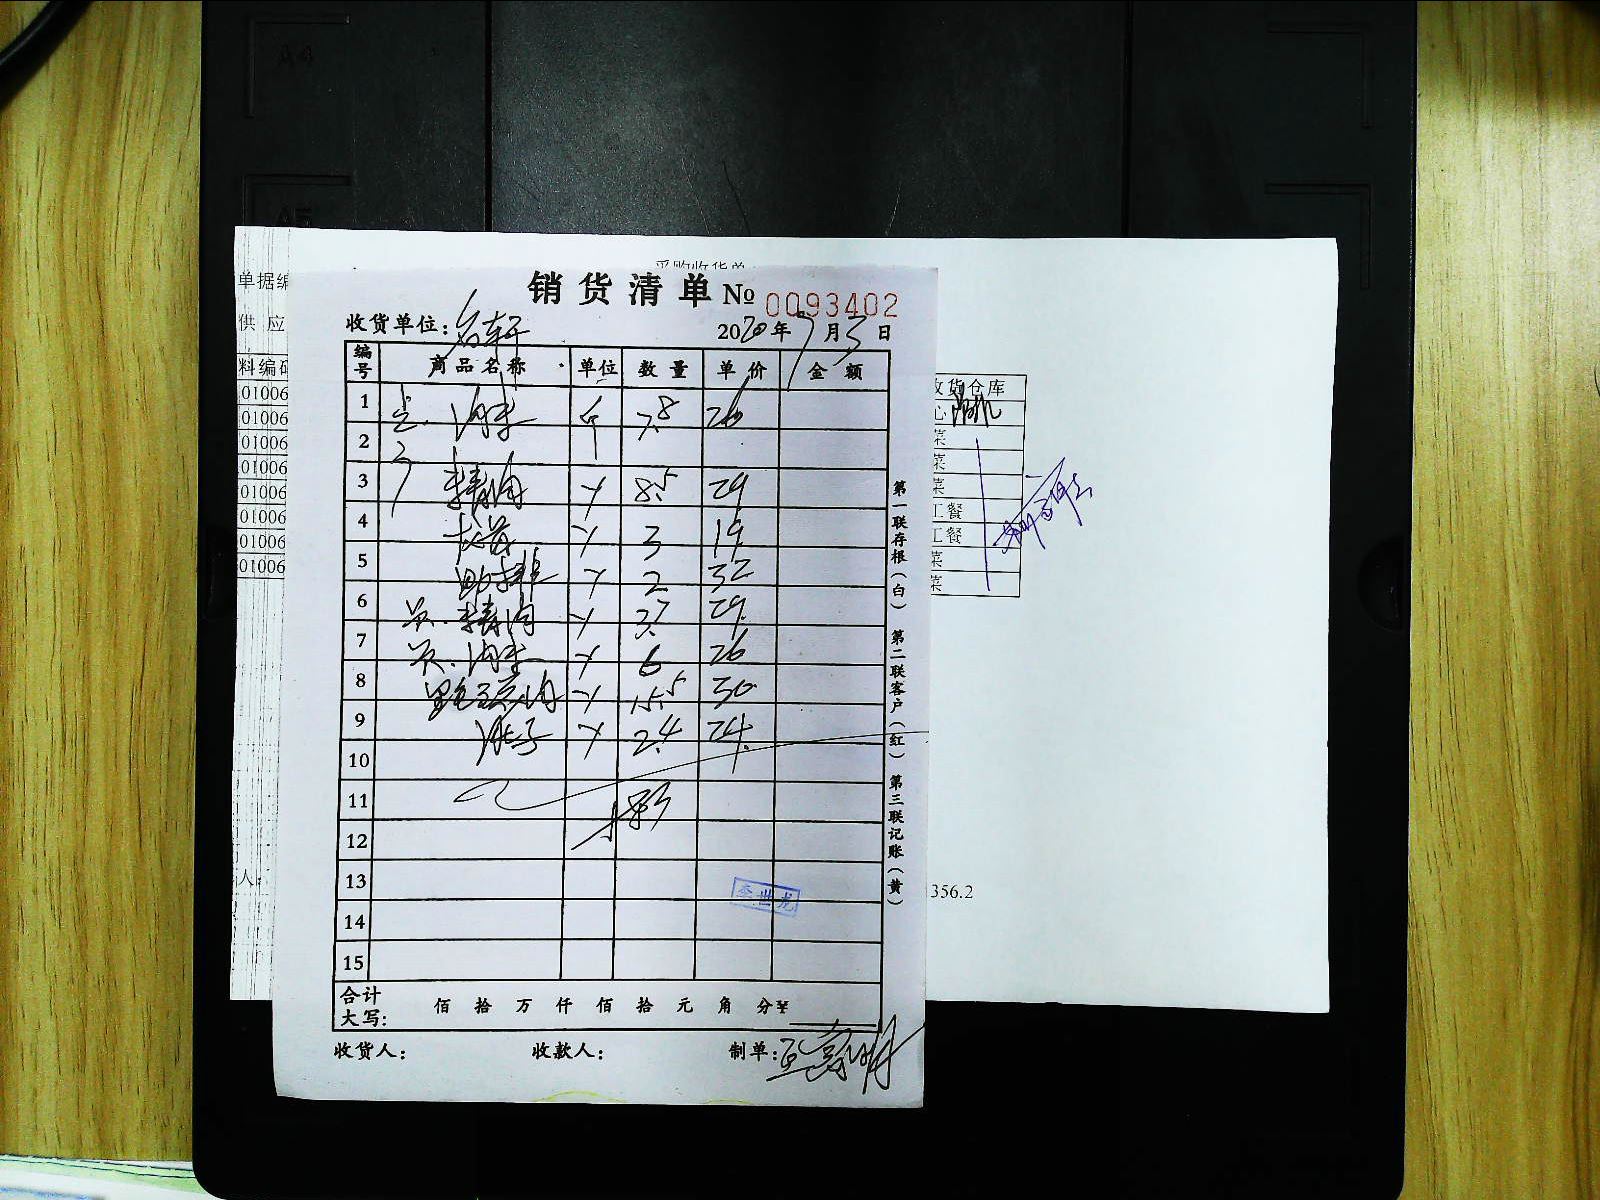 A4
A5
采购收货单
单据编
供 应
料编码
01006
01006
01006
01006
01006
01006
01006
01006
人:
销 货 清 单 № 0093402
收货单位: 名轩
2020 年 7 月 3 日
编号 商品名称 单位 数量 单价 金额
1 肉末 斤 7.8 26
2
3 精肉 8.5 29
4 3 19
5 肋排 2 32
6 员.精肉 3.7 29
7 员.肉末 6 26
8 15.5 30
9 肚子 2.4 24
10
11
12
13
14
15
李世光
合计
大写: 佰 拾 万 仟 佰 拾 元 角 分¥
收货人: 收款人: 制单:
第一联存根(白) 第二联客户(红) 第三联记账(黄)
收货仓库
心
菜
菜
菜
工餐
工餐
菜
菜
356.2